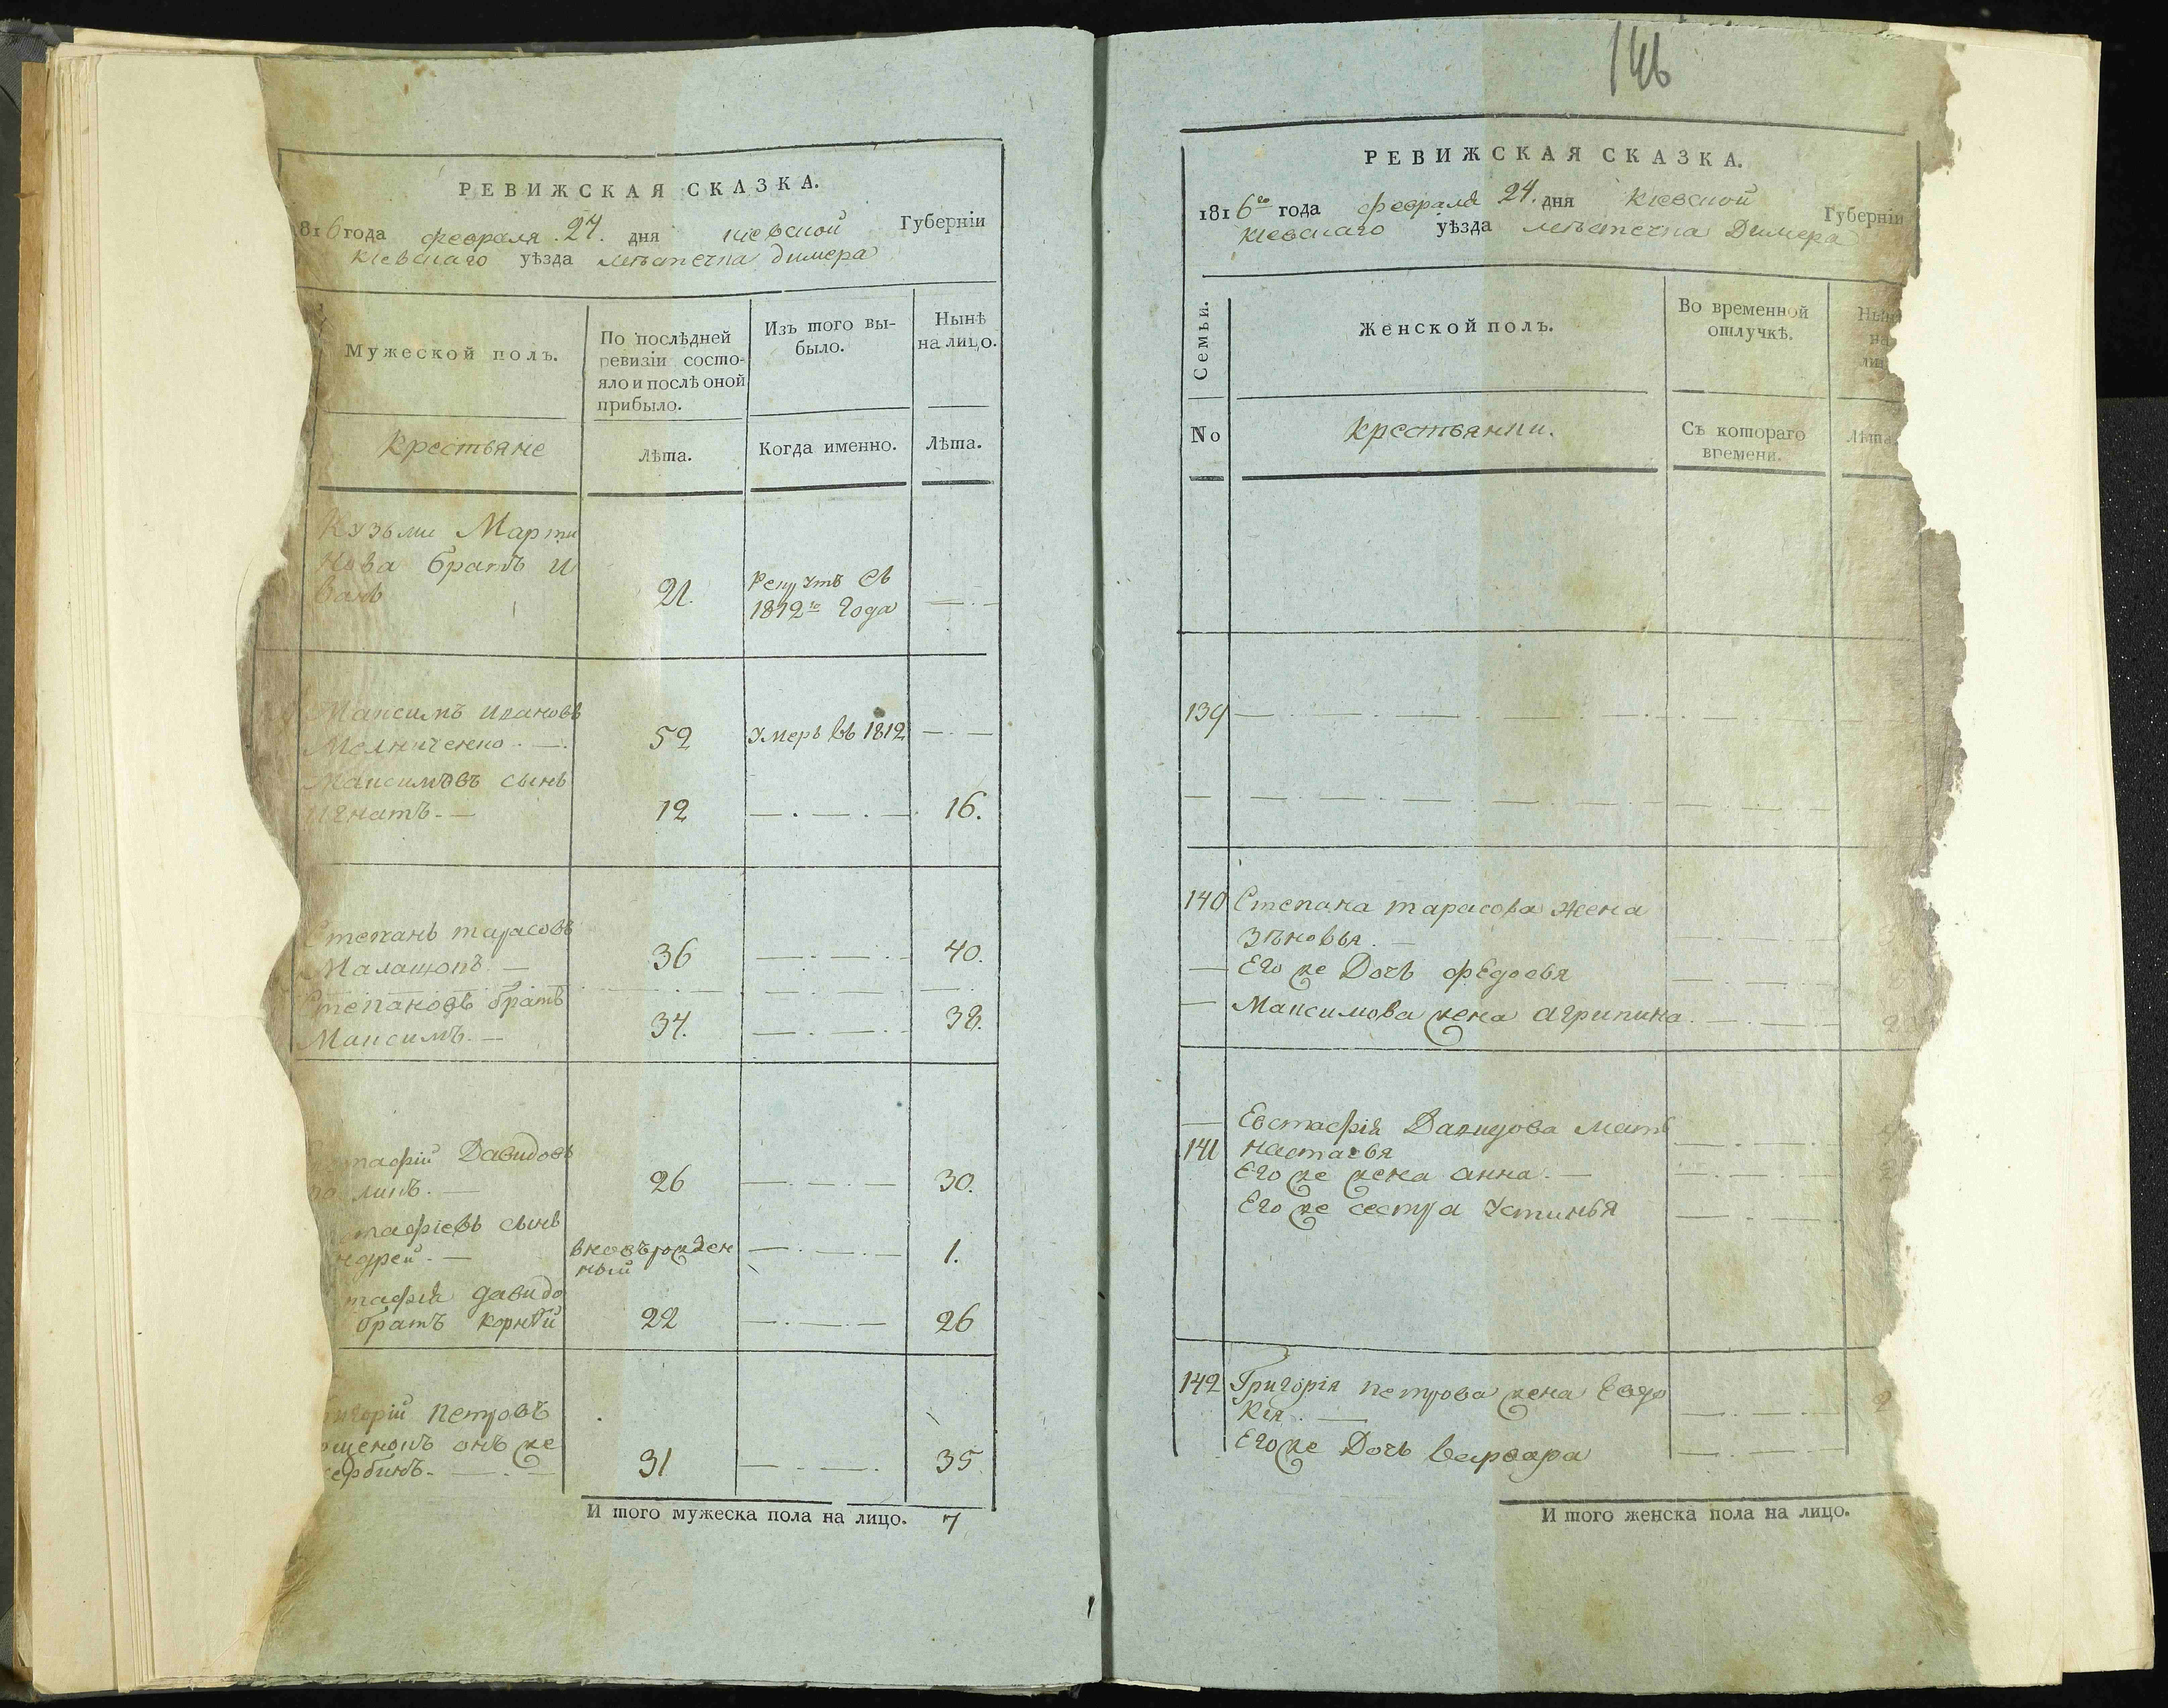 РЕВИЖСКАЯ СКАЗКА.
816 года февраля 24. дня кіевской Губерніи
кіевскаго уѣзда мѣстечка димера
Мужеской полъ.
По послѣдней
ревизіи состо-
яло и послѣ оной
прибыло.
Изъ того вы-
было.
Нынѣ
на лицо.
крестьяне
Лѣта.
Когда именно.
Лѣта.
Кузьми Марти
нова братъ и
ванъ
21.
Рекрутъ съ
1812го года
Максимъ ивановъ
Мелниченко
52
умеръ въ 1812
Максимовъ сынъ
игнатъ
12
16.
Степанъ тарасовъ
36
40.
Степановъ братъ
Максимъ.
34.
38.
тафій Давидовъ
26
30.
тафіевъ сынъ
ндрей
вновърожден
ный
1.
тафія давидо
братъ корнѣй
22
26
григорій петровъ
онъ же
31
35
И того мужеска пола на лицо. 7
146
РЕВИЖСКАЯ СКАЗКА.
1816го года февраля 24. дня кіевской Губерніи
кіевскаго уѣзда мѣстечка Димера
Семьи.
Женской полъ.
Во временной
отлучкѣ.
Ны
на
ли
No
крестьянки.
Съ котораго
времени.
Лѣта
139
140 Степана тарасова жена
Зѣновья.
Его же Дочь федосья
Максимова жена агрипина
Евстафія Давидова мать
141 настасья
Его же жена анна.
Его же сестра устинья
142 Григорія петрова жена Евдо
кія.
Его же Дочь варвара
И того женска пола на лицо.